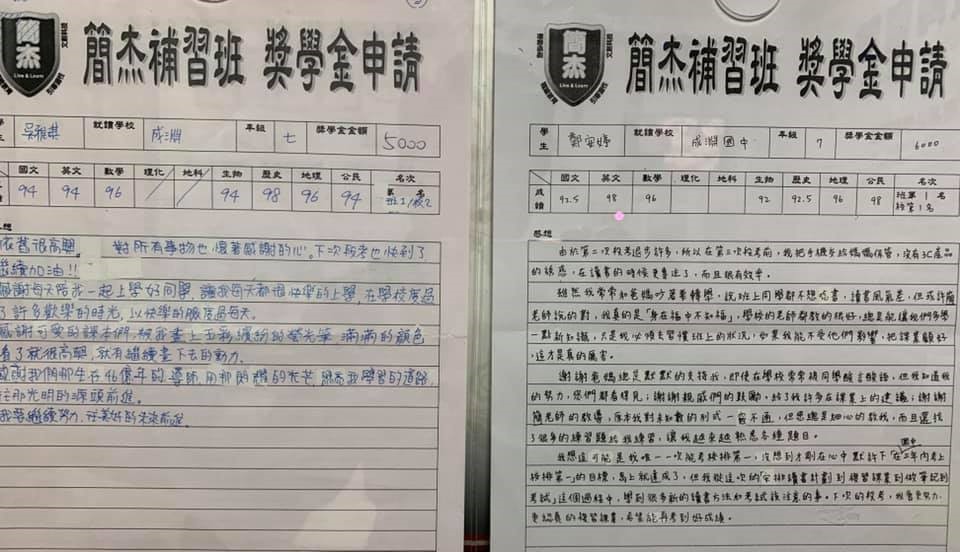 簡杰
Live & Learn
簡杰補習班 獎學金申請
吳雅琪 就讀學校 成淵 年級 七 獎學金金額 5000
國文 英文 數學 理化 地科 生物 歷史 地理 公民 名次
94 94 96 94 98 96 94
依舊很高興。 對所有事物也懷著感謝的心。下次段考也快到了
繼續加油!!
感謝每天陪我一起上學好同學,讓我每天都很快樂的上學,在學校度過
了許多歡樂的時光,以快樂的服度過每天。
感謝可愛的課本們,被我畫上五彩繽紛的螢光筆,滿滿的顏色
看了就很高興,就有繼續畫下去的動力。
往那光明的源頭前進。
我要繼續努力,往美好的未來前進。
簡杰
Live & Learn
簡杰補習班 獎學金申請
學生 鄭安婷 就讀學校 成淵國中 年級 7 獎學金金額 6000
國文 英文 數學 理化 地科 生物 歷史 地理 公民 名次
成績 92.5 98 96 92 92.5 96 98 班第1名 校第1名
感想
由於第二次校考退步許多,所以在第三次校考前,我把手機交給媽媽保管,沒有3C產品
的誘惑,在讀書的時候更專注了,而且很有效率。
雖然我常常和爸媽吵著要轉學,說班上同學都不想唸書,讀書風氣差,但或許簡
老師說的對,我真的是「身在福中不知福」,學校的老師都教的很好,總是能讓我們多學
一點新知識,只是我必須去習慣班上的狀況,如果我能不受他們影響,把課業顧好
,這才是真的厲害。
謝謝爸媽總是默默的支持我,即使在學校常常被同學酸言酸語,但我知道我
的努力,您們都看得見;謝謝親戚們的鼓勵,給了我許多在課業上的建議;謝謝
簡老師的教導,原本我對未知數的列式一竅不通,但您總是細心的教我,而且還找
了很多的練習題給我練習,讓我越來越熟悉各種題目。
我想這可能是我唯一一次能考校排第一,沒想到才剛在心中默許下「在國中三年內考上
校排第一」的目標,馬上就達成了,但我從這次的「安排讀書計劃到複習課業到做筆記到
考試」這個過程中,學到很多新的讀書方法和考試該注意的事。下次的校考,我會更努力、
更認真的複習課業,希望能再考到好成績。